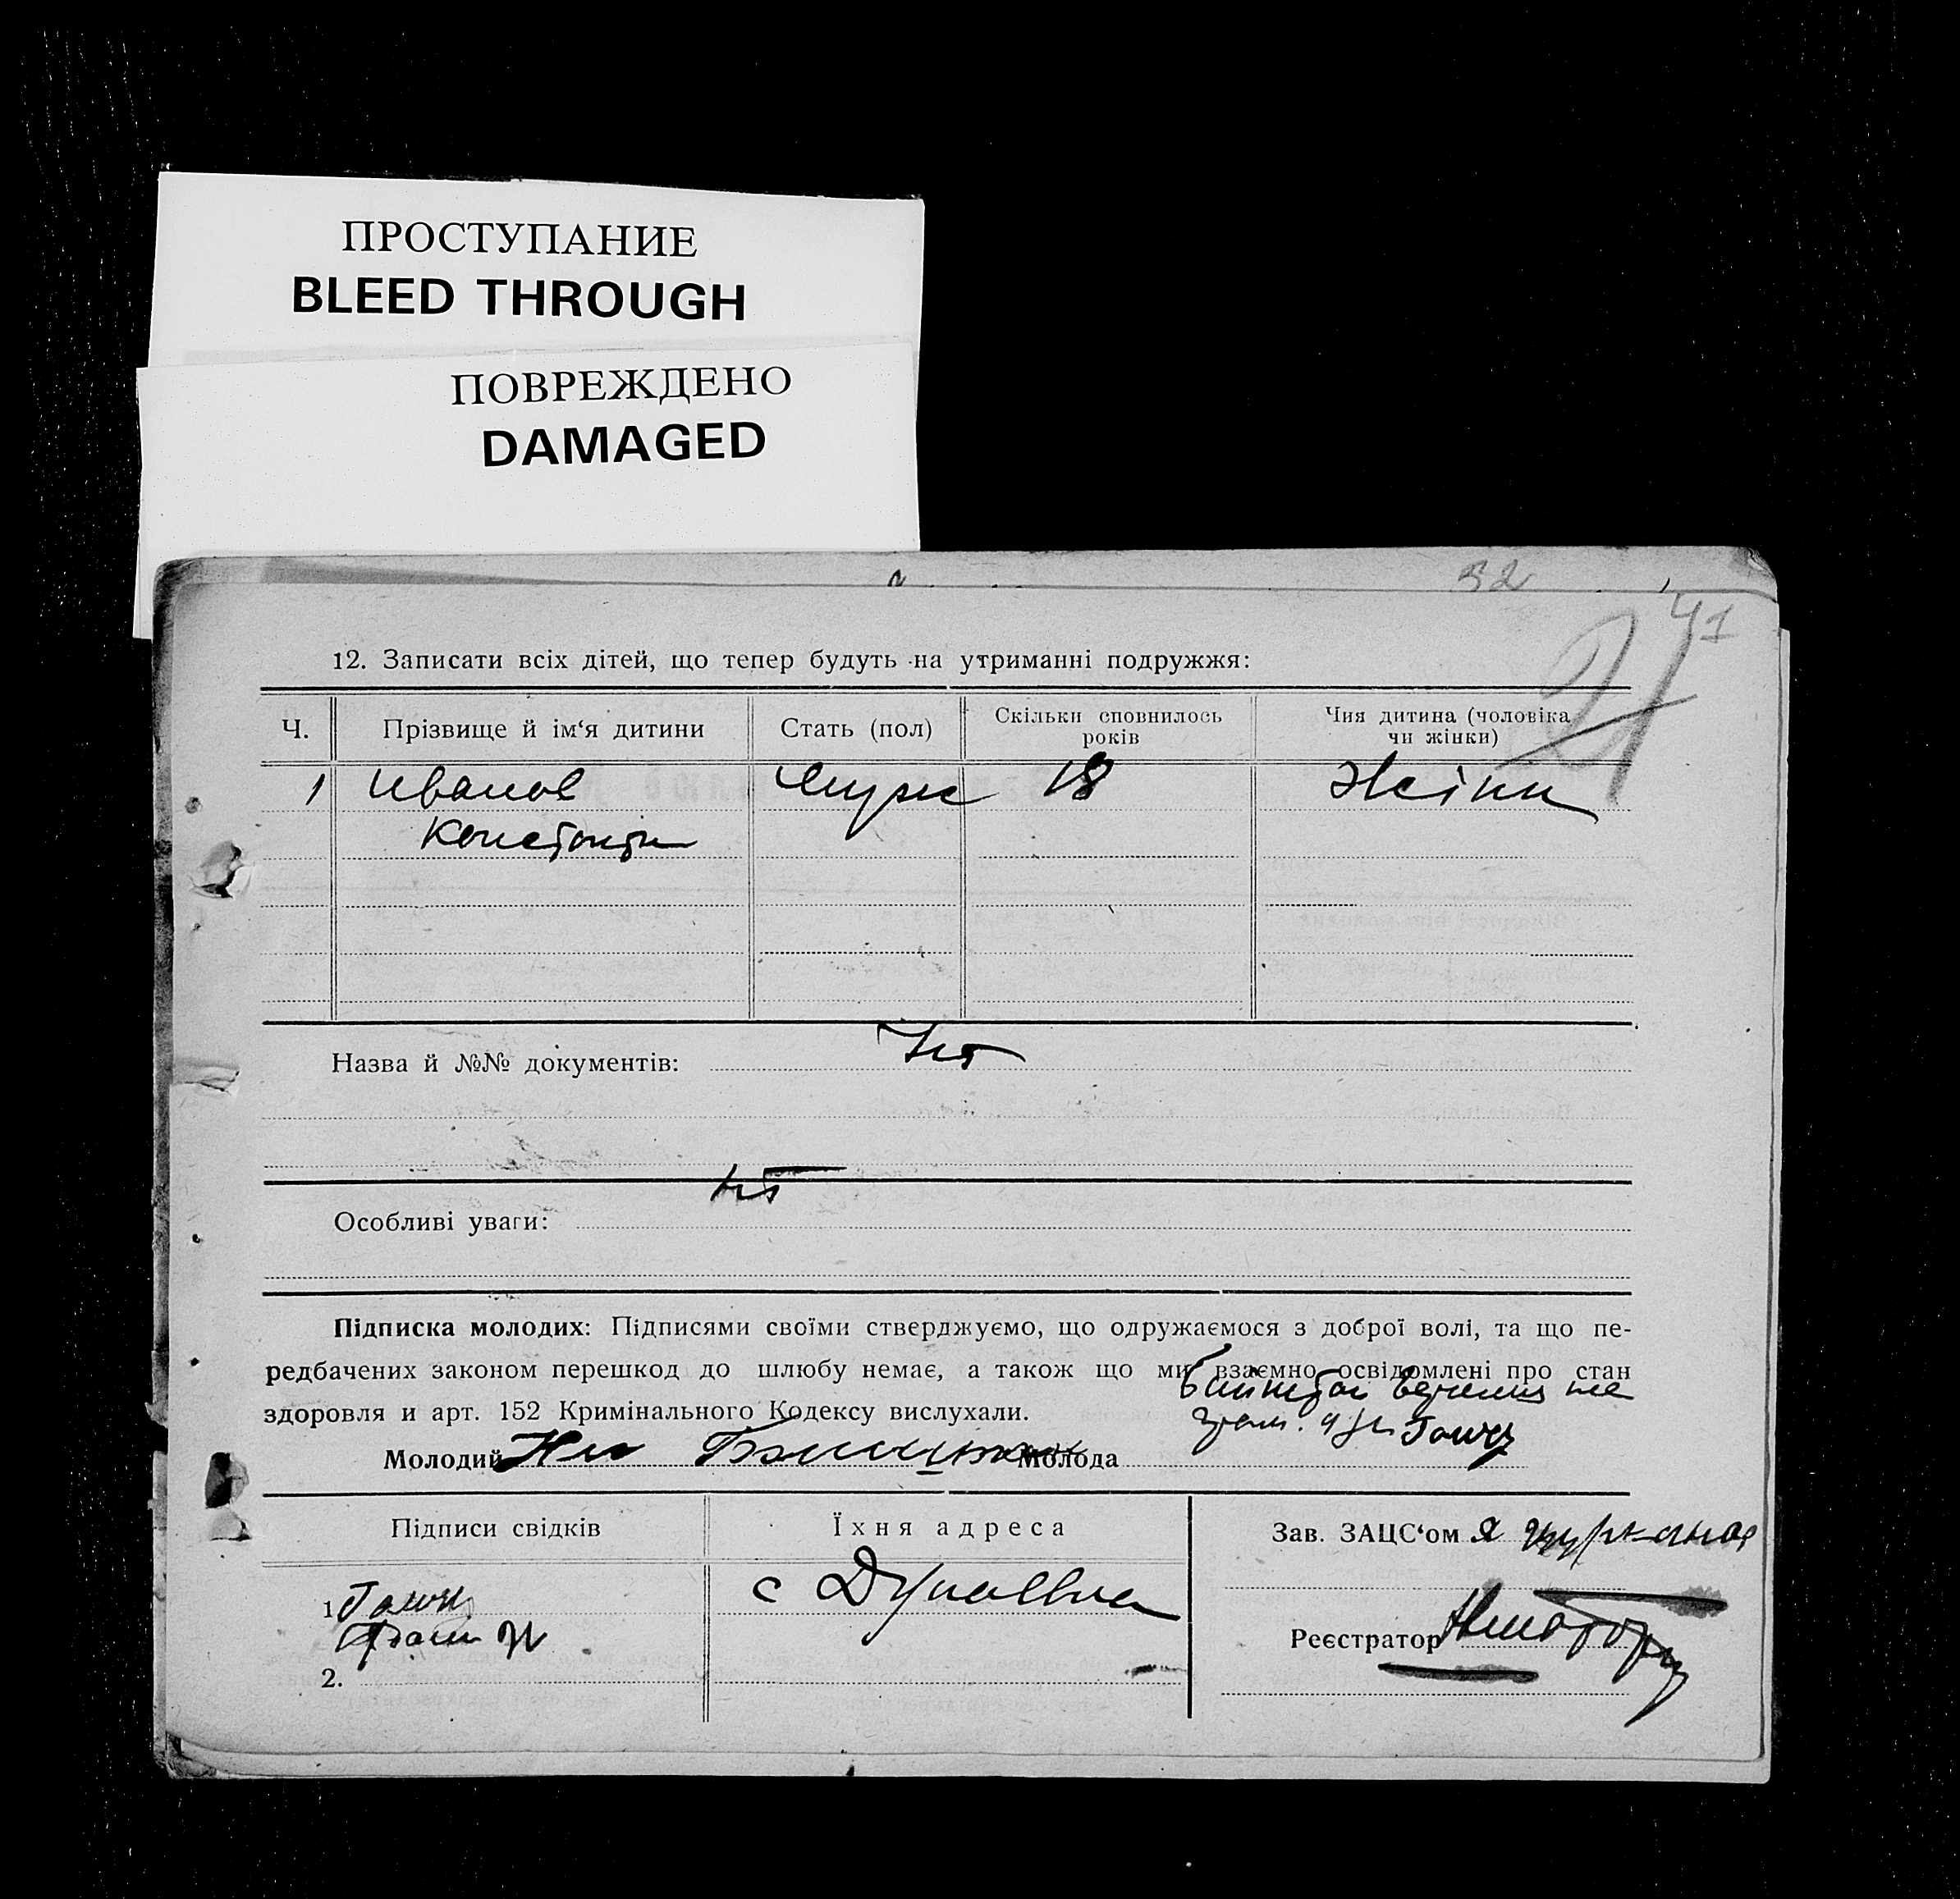 ПРОСТУПАНИЕ
BLEED THROUGH
ПОВРЕЖДЕНО
DAMAGED
32
41
21
12. Записати всіх дітей, що тепер будуть на утриманні подружжя:
Ч. Прізвище й ім‘я дитини Стать (пол) Скільки сповнилось років Чия дитина (чоловіка чи жінки)
1 Иванов муж 18 Жінки
Константин
Назва й №№ документів: Нет
нет
Особливі уваги:
Підписка молодих: Підписями своїми стверджуємо, що одружаємося з доброї волі, та що пе-
редбачених законом перешкод до шлюбу немає, а також що ми взаємно освідомлені про стан
здоровля и арт. 152 Кримінального Кодексу вислухали.
не
Молодий Молода
Підписи свідків Їхня адреса Зав. ЗАЦС‘ом
1 с
Реєстратор
2.